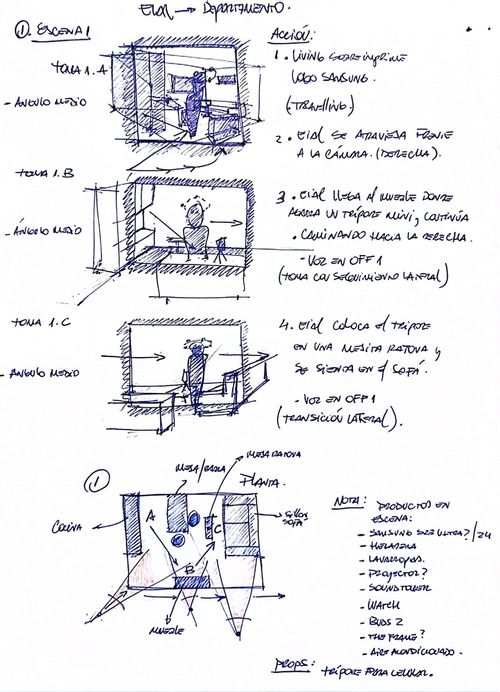 Eial → DEPARTAMENTO.
① ESCENA 1
TOMA 1.A
- ANGULO MEDIO
ACCIÓN:
1. LIVING SOBREIMPRIME
LOGO SAMSUNG.
(TRAVELLING)
2. Eial SE ATRAVIESA FRENTE
A LA CÁMARA. (DERECHA).
TOMA 1.B
- ÁNGULO MEDIO
3. Eial LLEGA Al MUEBLE DONDE
AGARRA UN TRÍPODE MINI, CONTINÚA
. CAMINANDO HACIA LA DERECHA.
- VOZ EN OFF 1
(TOMA CON SEGUIMIENTO LATERAL)
TOMA 1.C
- ANGULO MEDIO
4. Eial COLOCA El TRÍPODE
EN UNA MESITA RATONA Y
SE SIENTA EN El SOFÁ.
- VOZ EN OFF 1
(TRANSICIÓN LATERAL).
①
MESA/BARRA
MESA RATONA
PLANTA.
COCINA
A
B
C
SILLON
SOFÁ
MUEBLE
NOTA: PRODUCTOS EN
ESCENA:
- SAMSUNG S25 ULTRA? / 24
- HELADERA
- LAVARROPAS.
- PROJECTOR?
- SOUND TOWER
- WATCH
- BUDS 2
- THE FRAME?
- AIRE ACONDICIONADO.
PROPS: TRÍPODE PARA CELULAR.